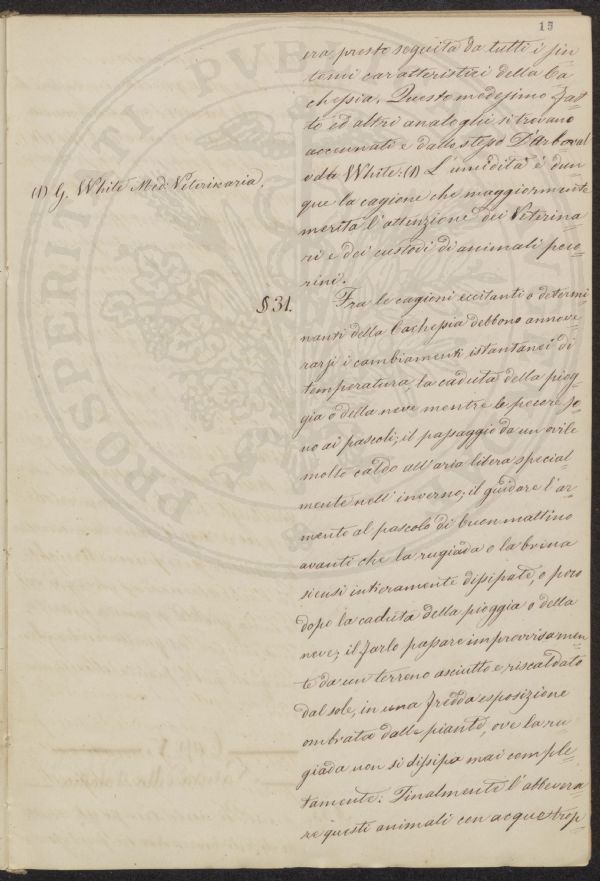 15
era presto seguita da tutti i sin
tomi caratteristici della Ca
chessia. Questo medesimo fat=
to ed altri analoghi si trovano
accennati e dallo stesso D'Arboval
e da White: (1) L'umidità è dun
(1) G. White Med: Veterinaria.
que la cagione che maggiormente
merita l'attenzione dei Veterina=
ri e dei custodi di animali peco=
rini.
§ 31. Fra le cagioni eccitanti o determi
nanti della Cachessia debbono annove=
rarsi i cambiamenti istantanei di
temperatura, la caduta della piog=
gia o della neve mentre le pecore so=
no ai pascoli; il passaggio da un ovile
molto caldo all'aria libera special=
mente nell'inverno; il guidare l'ar=
mento al pascolo di buon mattino
avanti che la rugiada o la brina
siensi intieramente dissipate, o poco
dopo la caduta della pioggia o della
neve; il farlo passare improvvisamen
te da un terreno asciutto e riscaldato
dal sole, in una fredda esposizione
ombrata dalle piante, ove la ru=
giada non si dissipa mai comple=
tamente: Finalmente l'abbevera
re questi animali con acque trop=
PROSPERITATI PVBLI